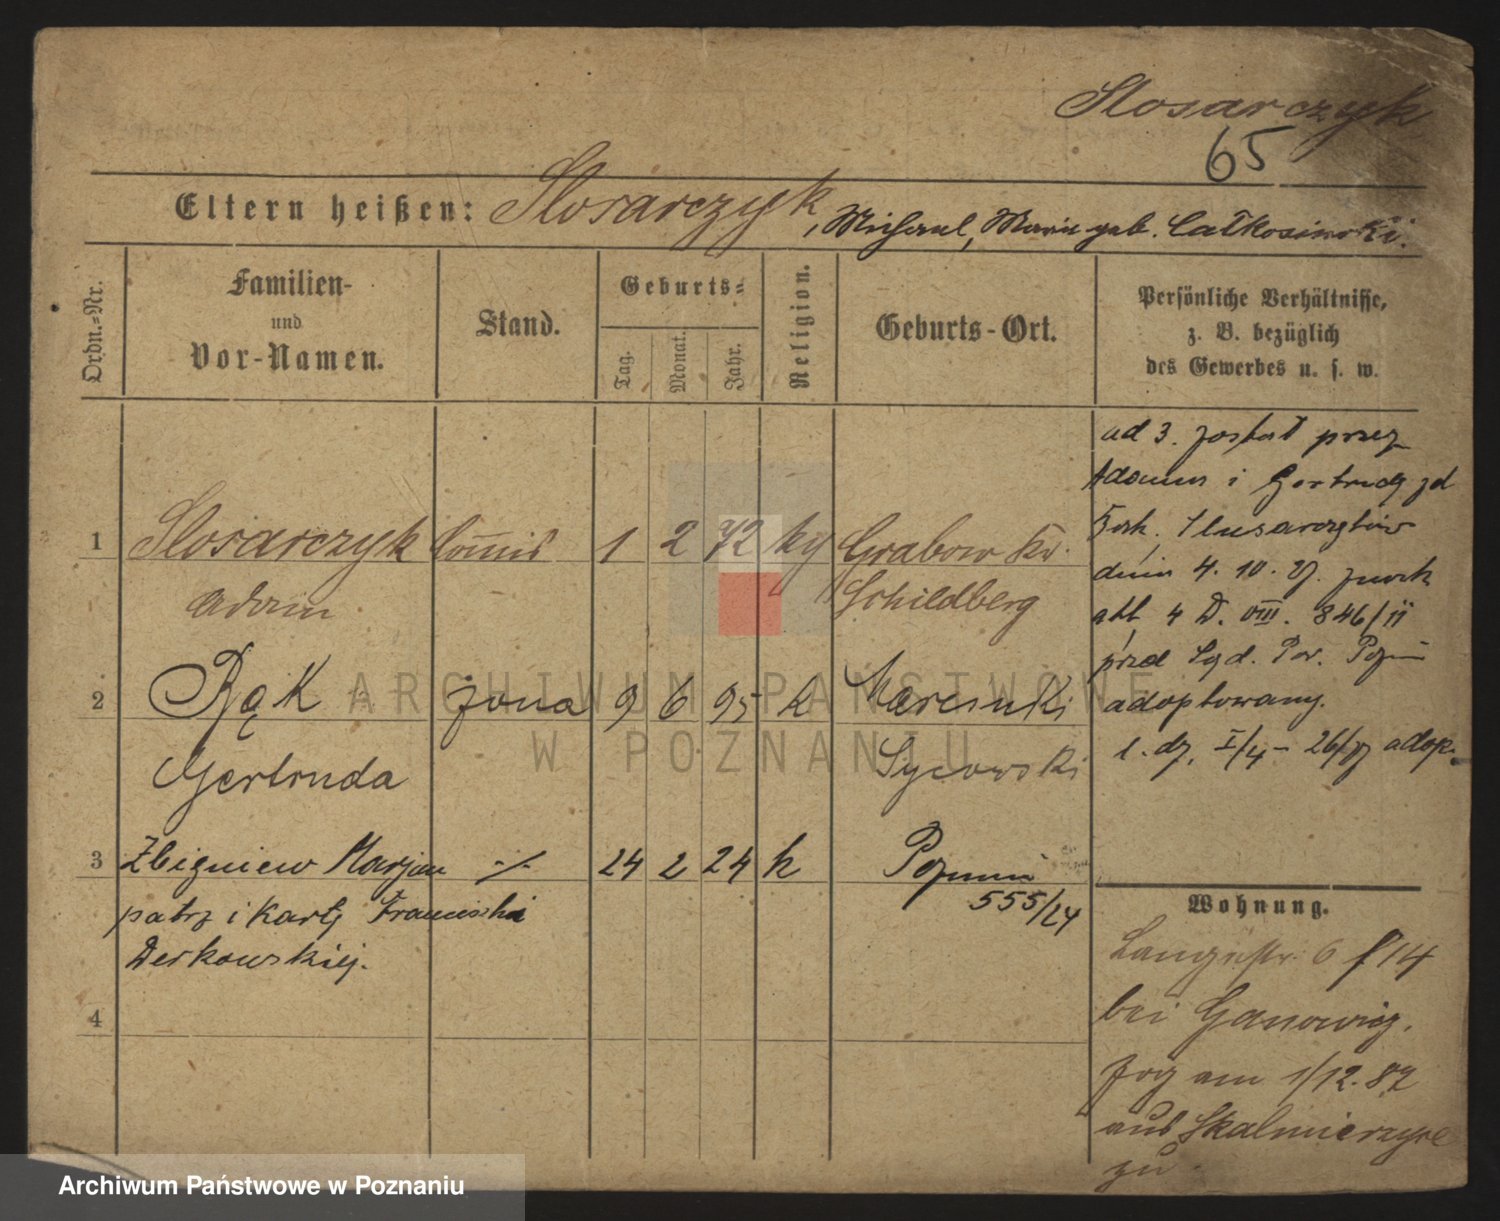 Slosarczyk
65
Eltern heißen: Slosarczyk, Michael, Marie geb. Całkosinski.
Ordn.-Nr.
Familien-
und
Vor-Namen.
Stand.
Geburts-
Tag.
Monat.
Jahr.
Religion.
Geburts-Ort.
Persönliche Verhältnisse,
z. B. bezüglich
des Gewerbes u. s. w.
1 Slosarczyk Commis 1 2 72 kg Grabow Kr.
Adam Schildberg
2 Bąk żona 9 6 95 k Marcinki
Gertruda Sycowski
3 Zbigniew Marjan -/- 24 2 24 k Poznań
555/24
patrz i kartę Franciszki
Derkowskiej.
4
ad 3. został przez
Adama i Gertrudę zd
Bąk, Slusarczyków
dnia 4. 10. 27.
akt 4 D. VIII. 846/11
przed Sąd. Pow. Poznań
adoptowany.
l. dz. I/4 - 26/27 adop.
Wohnung.
Langestr. 6 f 14
bei Ganowicz.
Zog am 1/12. 87
aus Skalmierzyce
zu.
ARCHIWUM PAŃSTWOWE
W POZNANIU
Archiwum Państwowe w Poznaniu